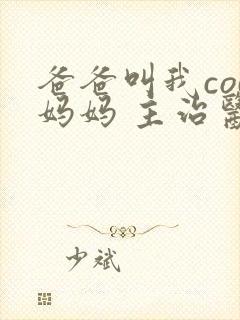 爸爸叫我co
妈妈 主治
少斌